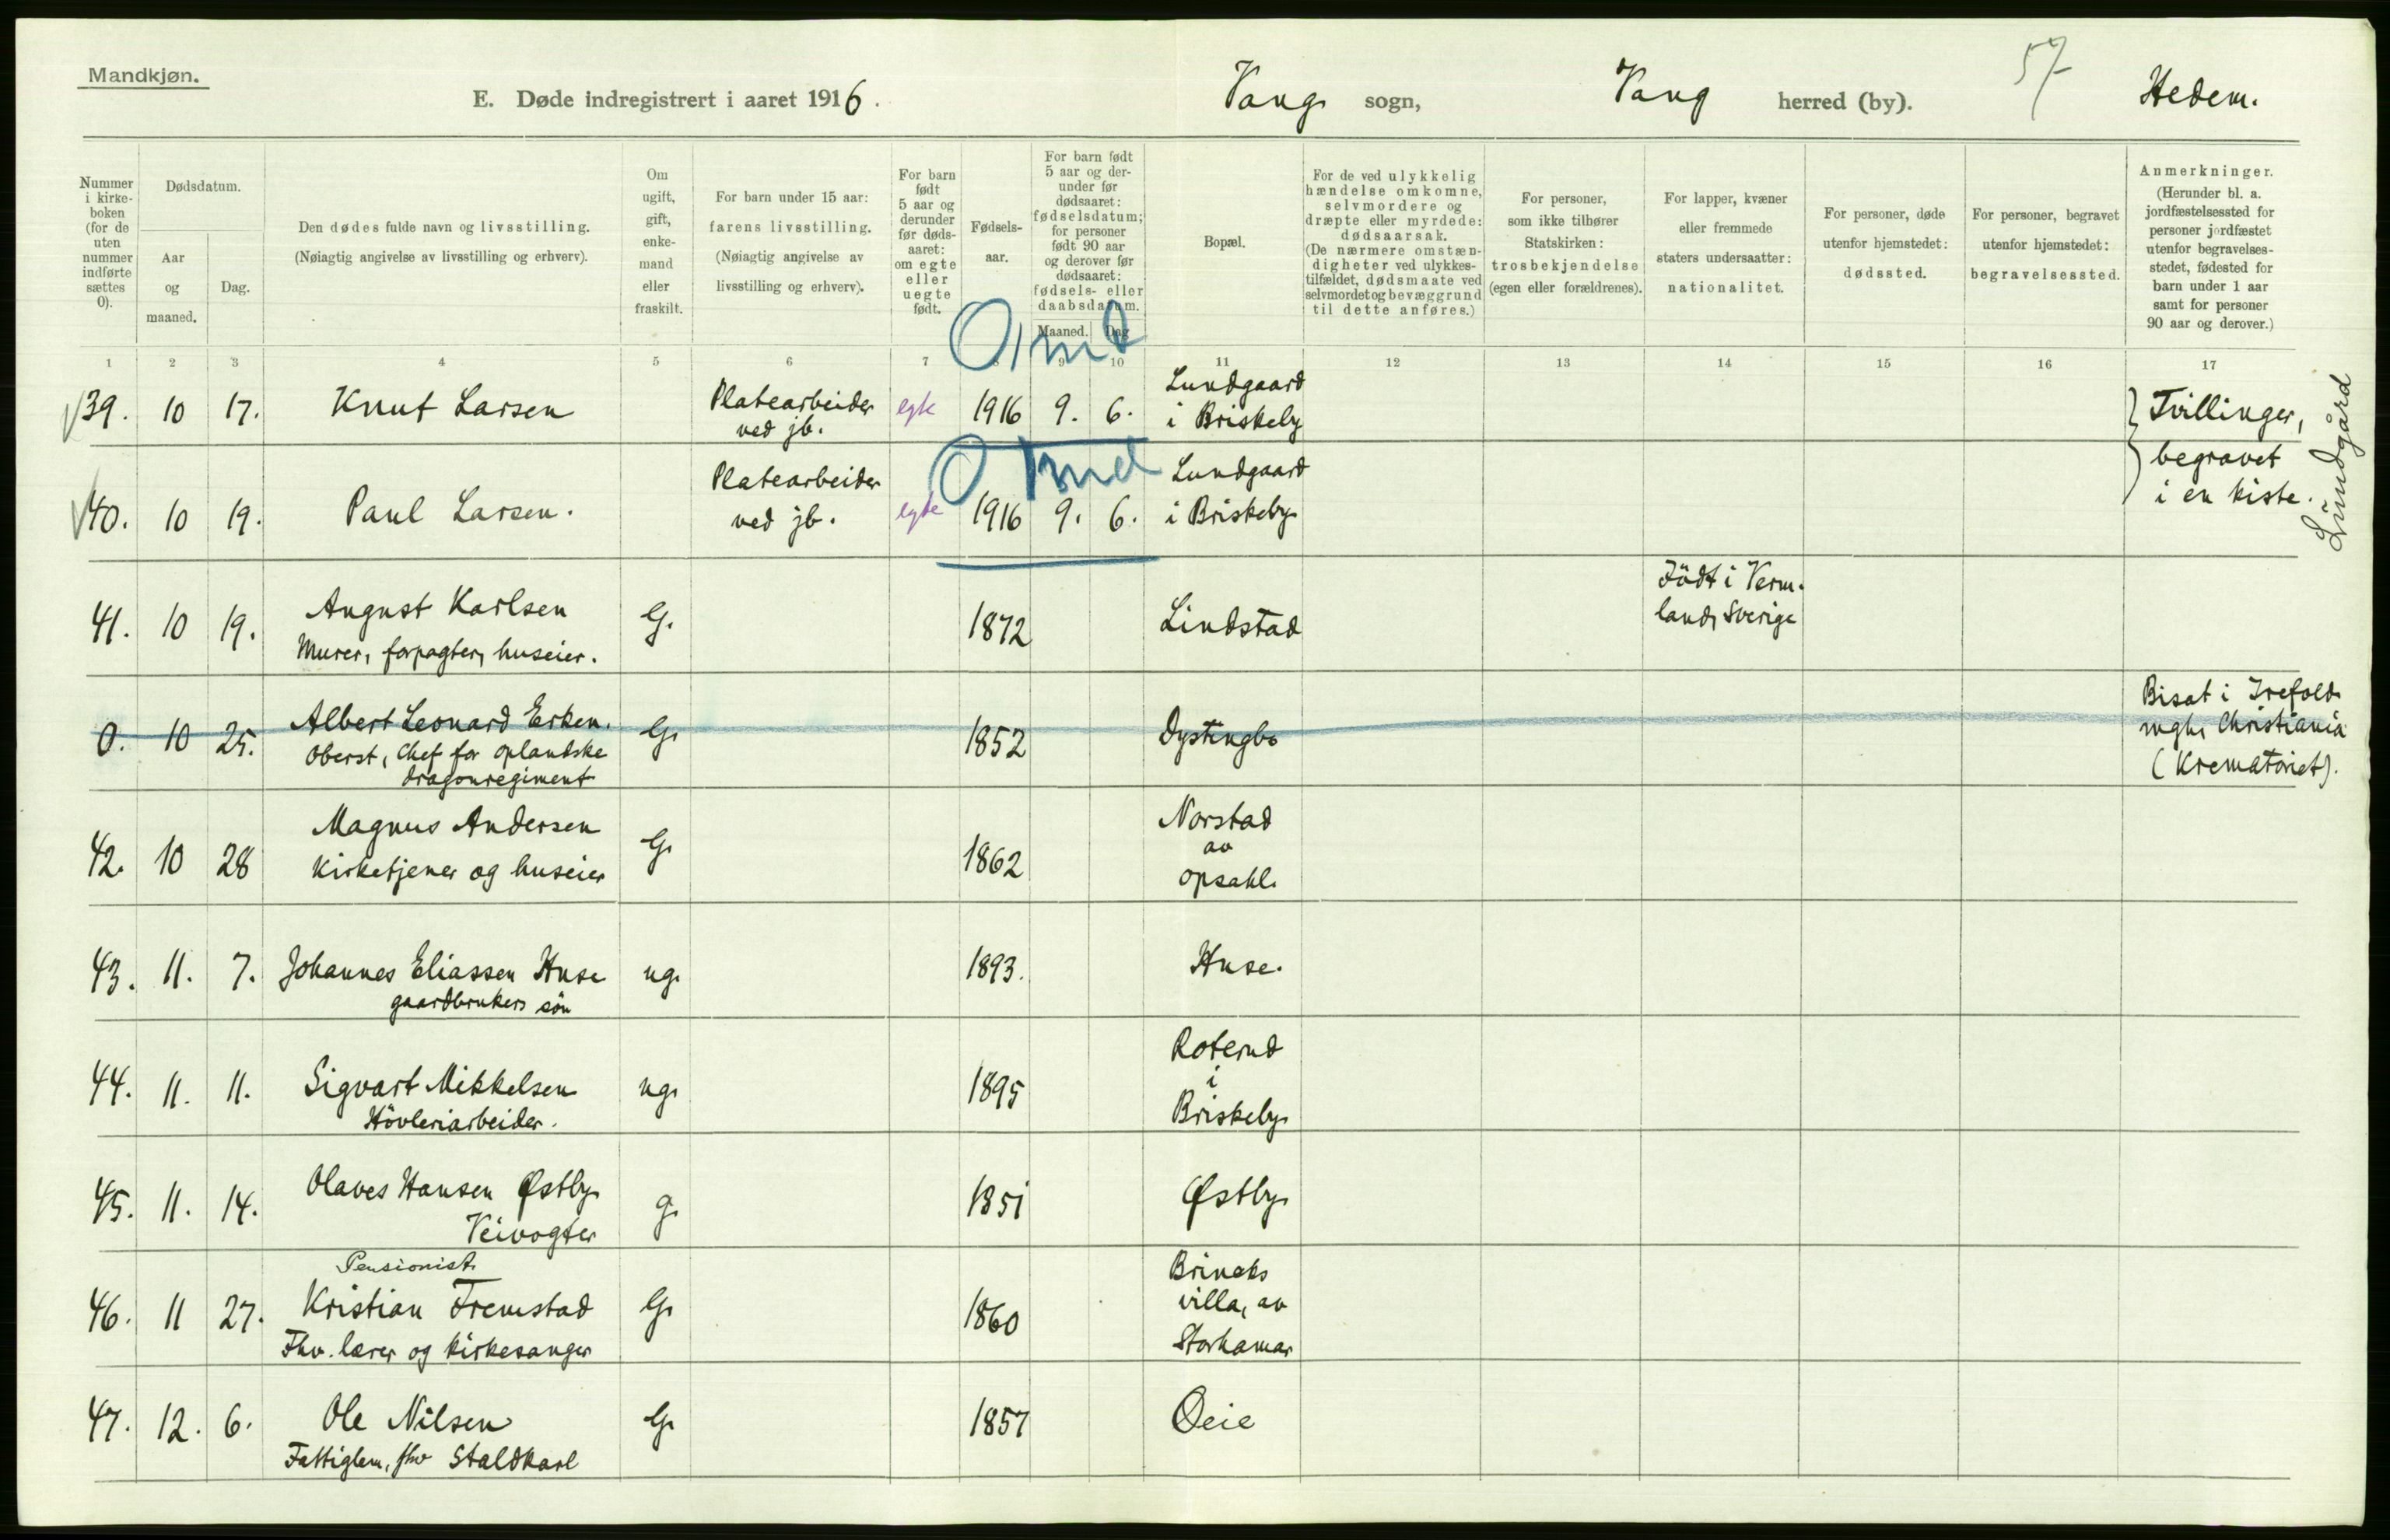 Mandkjøn.
E. Døde indregistrert i aaret 1916.
Vang sogn,
Vang herred (by).
57
Hedem.
Nummer i kirke-boken (for de uten nummer indførte sættes 0).
Dødsdatum.
Aar og maaned.
Dag.
Den dødes fulde navn og livsstilling.
(Nøiagtig angivelse av livsstilling og erhverv).
Om ugift, gift, enke-mand eller fraskilt.
For barn under 15 aar:
farens livsstilling.
(Nøiagtig angivelse av
livsstilling og erhverv).
For barn født 5 aar og derunder før døds-aaret: om egte eller uegte født.
Fødsels-aar.
For barn født 5 aar og der-under før dødsaaret: fødselsdatum; for personer født 90 aar og derover før dødsaaret: fødsels- eller daabsdatum.
Maaned.
Dag
Bopæl.
For de ved ulykkelig hændelse omkomne, selvmordere og dræpte eller myrdede: dødsaarsak.
(De nærmere omstæn-digheter ved ulykkes-tilfældet, dødsmaate ved selvmordet og bevæggrund til dette anføres.)
For personer, som ikke tilhører Statskirken: trosbekjendelse (egen eller forældrenes).
For lapper, kvæner eller fremmede staters undersaatter: nationalitet.
For personer, døde utenfor hjemstedet: dødssted.
For personer, begravet utenfor hjemstedet: begravelsessted.
Anmerkninger.
(Herunder bl. a. jordfæstelsessted for personer jordfæstet utenfor begravelses-stedet, fødested for barn under 1 aar samt for personer 90 aar og derover.)
1 2 3 4 5 6 7 8 9 10 11 12 13 14 15 16 17
0 1 md
39. 10 17. Knut Larsen Platearbeider ved jb. egte 1916 9. 6. Lundgaard i Briskeby Tvillinger,
0 1 md
40. 10 19. Paul Larsen. Platearbeider ved jb. egte 1916 9. 6. Lundgaard i Briskeby begravet i en kiste.
Lundgård
41. 10 19. August Karlsen G. 1872 Lindstad Födt i Verm.land, Sverige
Murer, forpagter, huseier.
0. 10 25. Albert Leonard Erken. G. 1852 Dystingbo Bisat i Trefold.
Oberst, Chef for oplandske
dragonregiment
mgh. Christiania
(Krematoriet).
42. 10 28 Magnus Andersen G. 1862 Norstad av Opsahl.
Kirketjener og huseier
43. 11. 7. Johannes Eliassen Huse ug. 1893. Huse.
gaardbrukers sön
44. 11. 11. Sigvart Mikkelsen ug. 1895 Roterud i Briskeby
Hövleriarbeider.
45. 11. 14. Olaves Hansen Østby g. 1851 Østby
Veivogter
Pensionist
46. 11 27. Kristian Fremstad G. 1860 villa, av Storhamar
Fhv. lærer og kirkesanger
47. 12. 6. Ole Nilsen G. 1857 Øeie
Fattiglem, fhv Staldkarl